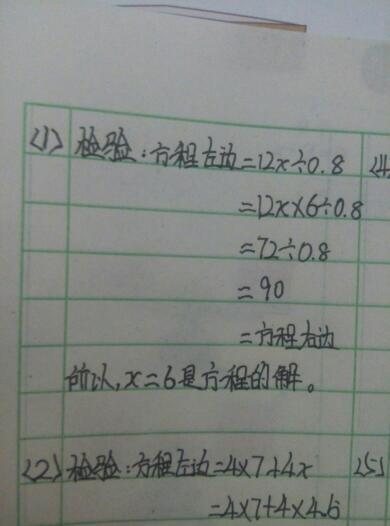 (1) 检验:方程左边=12x÷0.8
(4
=12××6÷0.8
=72÷0.8
=90
=方程右边
所以,x=6是方程的解。
(2) 检验:方程左边=4×7+4x
(5)
=4×7+4×4.6